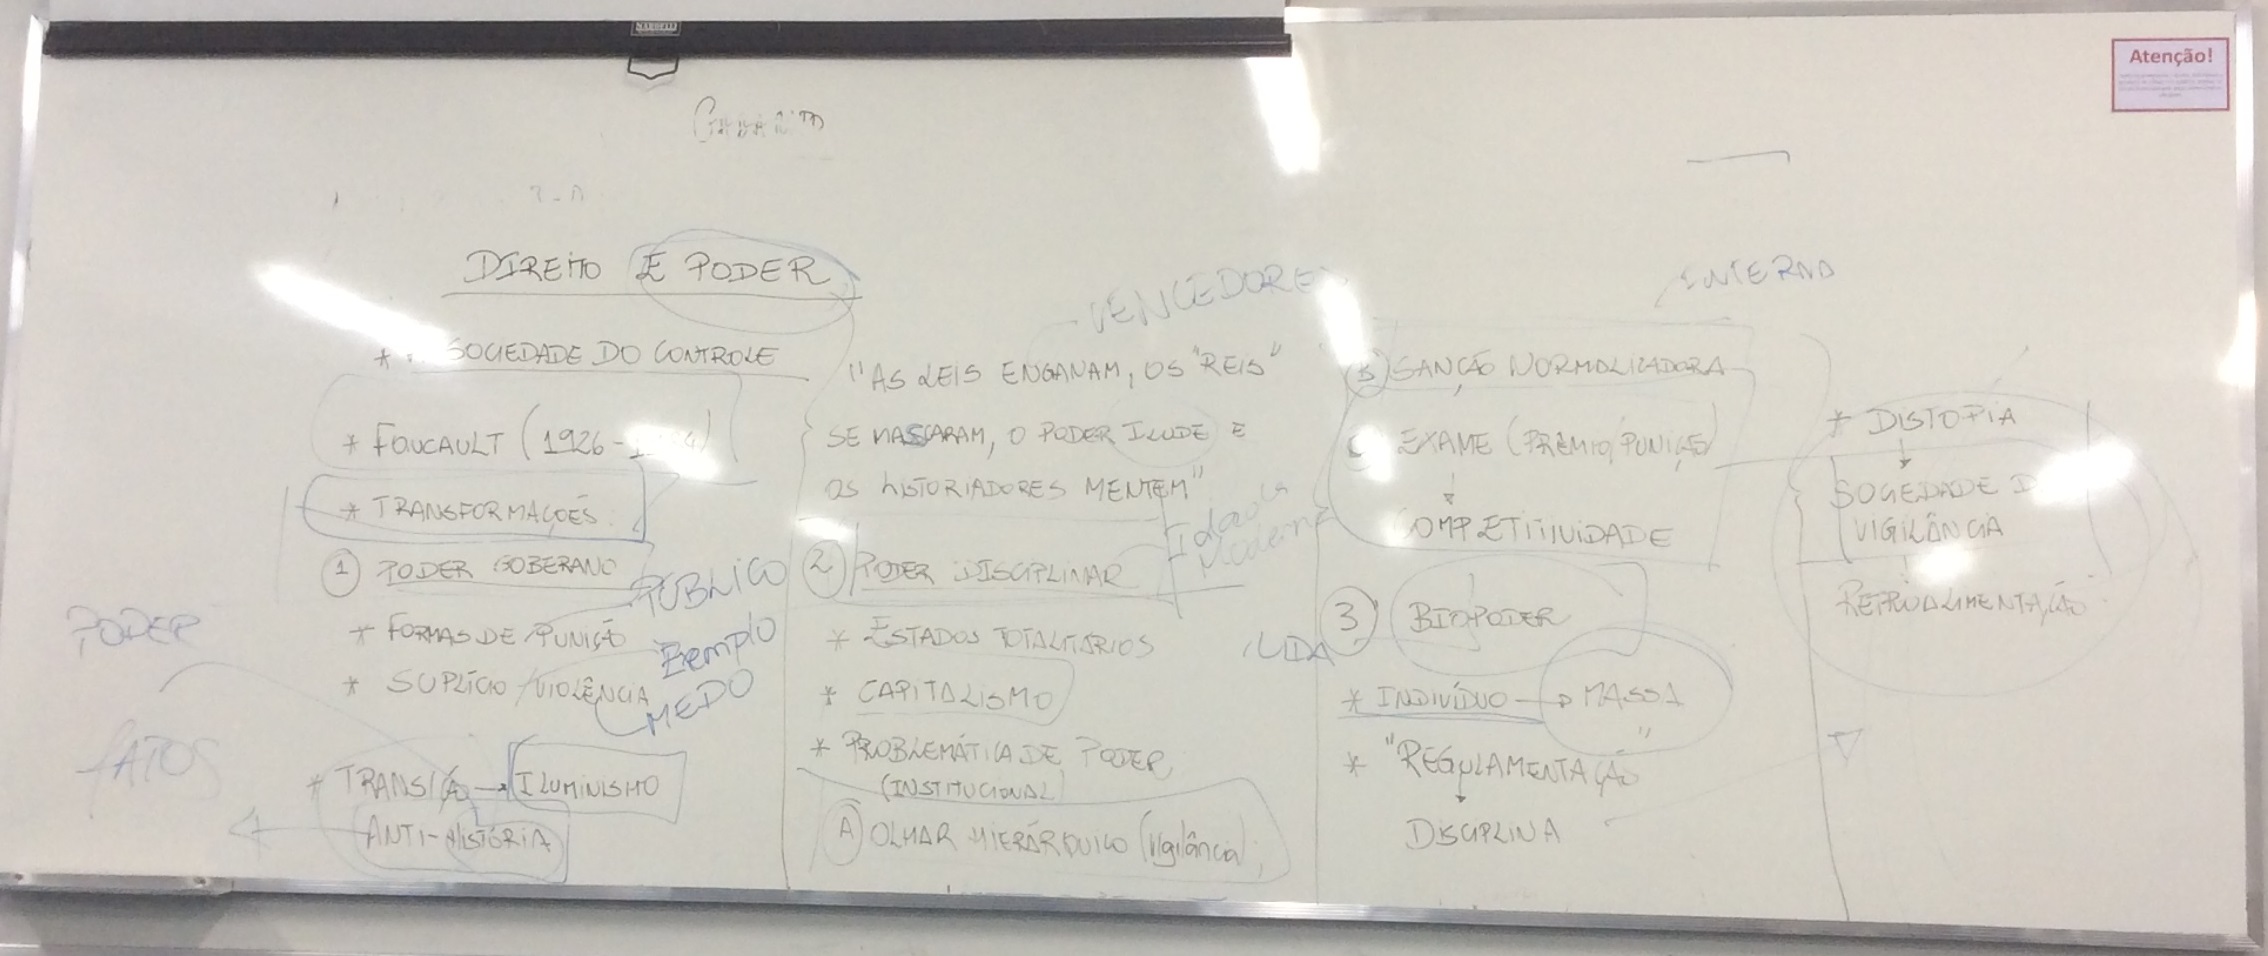 Atenção!
DIREITO E PODER
* SOCIEDADE DO CONTROLE
* FOUCAULT (1926 -
* TRANSFORMAÇÕES
1 PODER SOBERANO
PÚBLICO
* FORMAS DE PUNIÇÃO
Exemplo
* SUPLÍCIO / VIOLÊNCIA
MEDO
PODER
FATOS
* TRANSIÇÃO → ILUMINISMO
ANTI-HISTÓRIA
VENCEDORES
"AS LEIS ENGANAM, OS "REIS"
SE MASCARAM, O PODER ILUDE E
OS HISTORIADORES MENTEM"
Idade
Moderna
2 PODER DISCIPLINAR
* ESTADOS TOTALITÁRIOS
* CAPITALISMO
* PROBLEMÁTICA DE PODER
(INSTITUCIONAL)
A OLHAR HIERÁRQUICO (Vigilância);
INTERNO
B SANÇÃO NORMALIZADORA
C EXAME (PRÊMIO/PUNIÇÃO)
↓
COMPETITIVIDADE
3 BIOPODER
* INDIVÍDUO → MASSA
* "REGULAMENTAÇÃO"
↓
DISCIPLINA
* DISTOPIA
↓
SOCIEDADE
VIGILÂNCIA
↓
RETROALIMENTAÇÃO